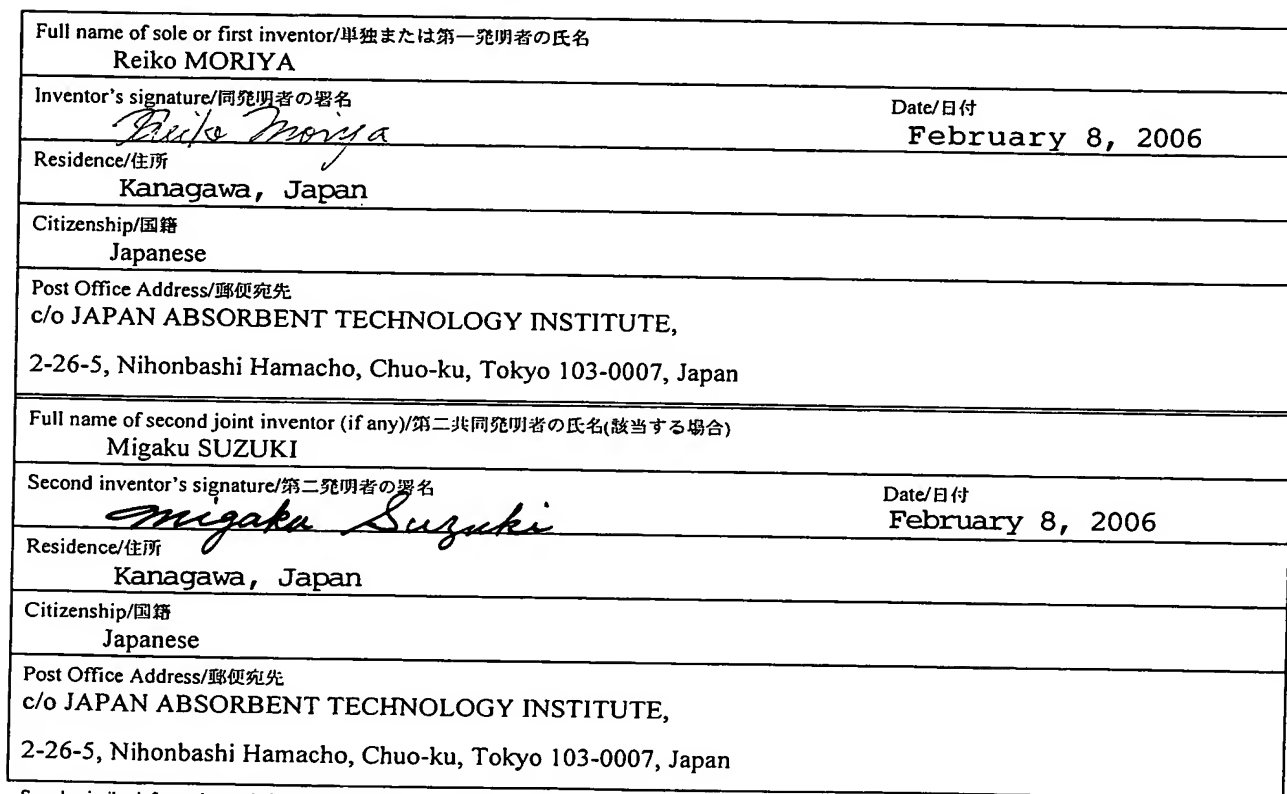 Full name of sole or first inventor/単独または第一発明者の氏名
Reiko MORIYA
Inventor's signature/同発明者の署名
Date/日付
Reiko Moriya
February 8, 2006
Residence/住所
Kanagawa, Japan
Citizenship/国籍
Japanese
Post Office Address/郵便宛先
c/o JAPAN ABSORBENT TECHNOLOGY INSTITUTE,
2-26-5, Nihonbashi Hamacho, Chuo-ku, Tokyo 103-0007, Japan
Full name of second joint inventor (if any)/第二共同発明者の氏名(該当する場合)
Migaku SUZUKI
Second inventor's signature/第二発明者の署名
Date/日付
Migaku Suzuki
February 8, 2006
Residence/住所
Kanagawa, Japan
Citizenship/国籍
Japanese
Post Office Address/郵便宛先
c/o JAPAN ABSORBENT TECHNOLOGY INSTITUTE,
2-26-5, Nihonbashi Hamacho, Chuo-ku, Tokyo 103-0007, Japan